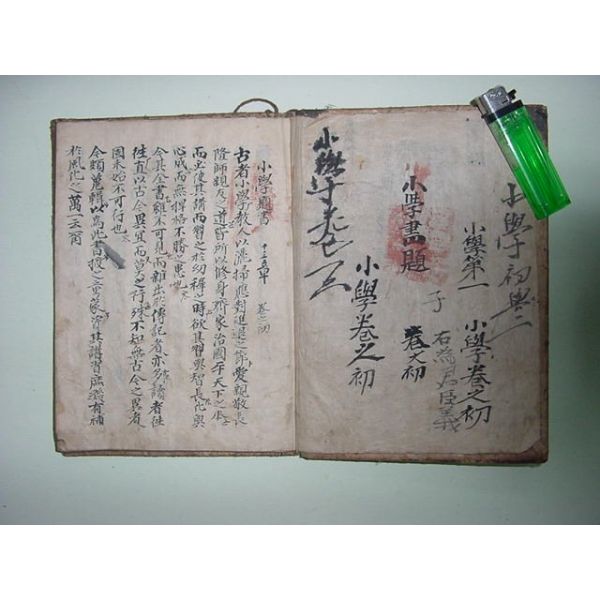 小學卷之初
小學第一
子
卷之初
小學書題
小學卷之初
小學題書
卷之初
古者小學教人以灑掃應對進退之節愛親敬長
隆師親友之道皆所以修身齊家治國平天下之本
而必使其講而習之於幼穉之時欲其習與智長化與
心成而無扞格不勝之患也
今其全書雖不可見而雜出於傳記者亦多讀者往
往直以古今異宜而莫之行殊不知無古今之異者
固未始不可行也
今頗蒐輯以為此書授之童蒙資其講習庶幾有補
於風化之萬一云爾